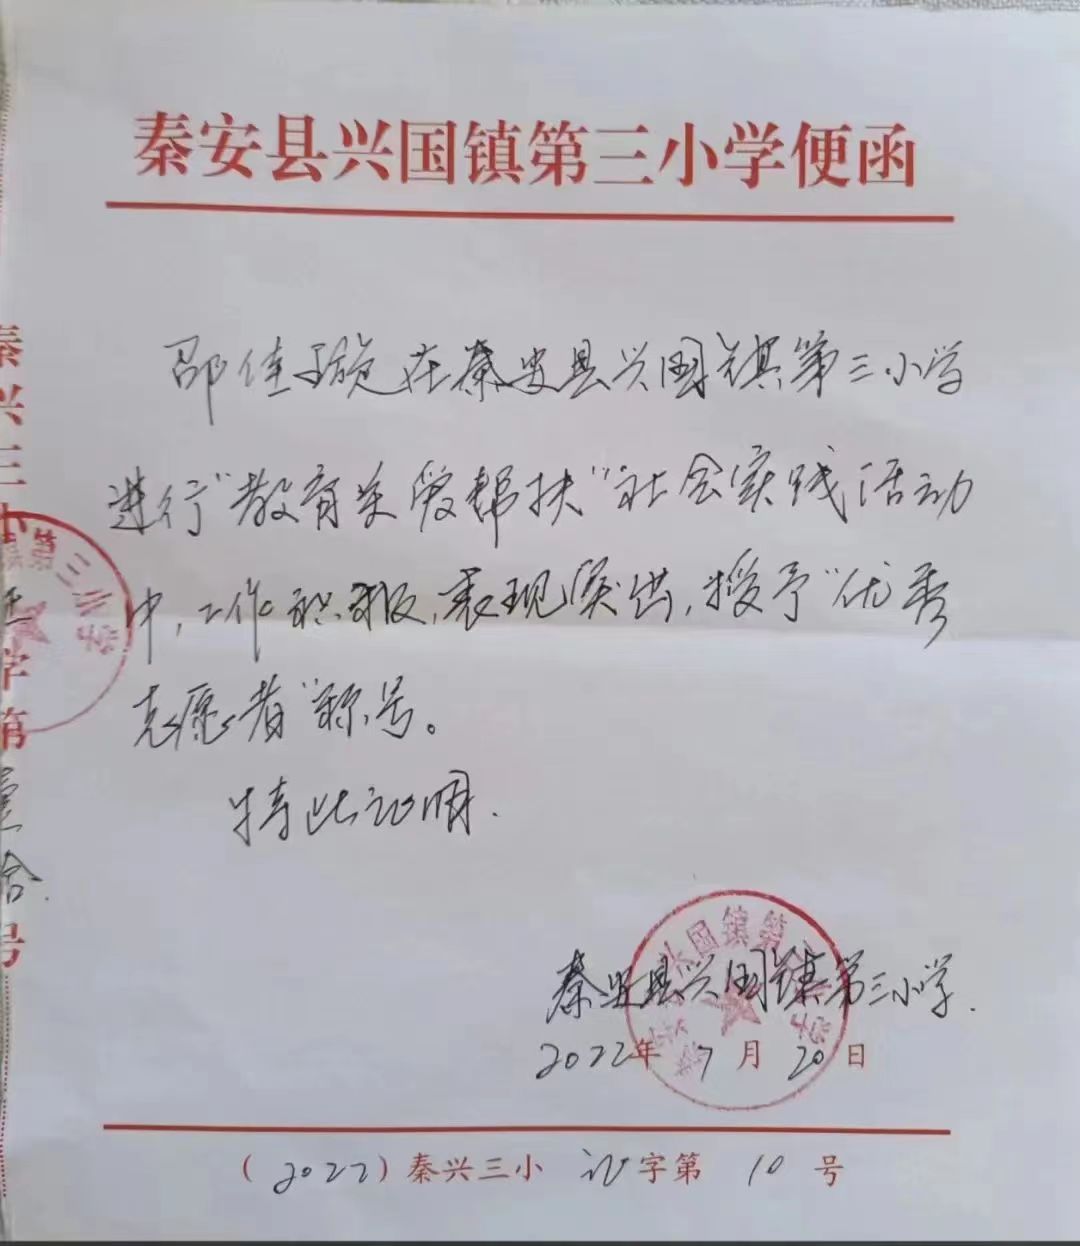 秦安县兴国镇第三小学便函
邵佳璇在秦安县兴国镇第三小学
进行“教育关爱帮扶”社会实践活动
中,工作积极,表现突出,授予“优秀
志愿者”称号。
特此证明.
秦安县兴国镇第三小学.
2022年 7月 20日
(2022)秦兴三小 证字第 10 号
秦兴三小证字第壹拾号
第三小学
兴国镇第